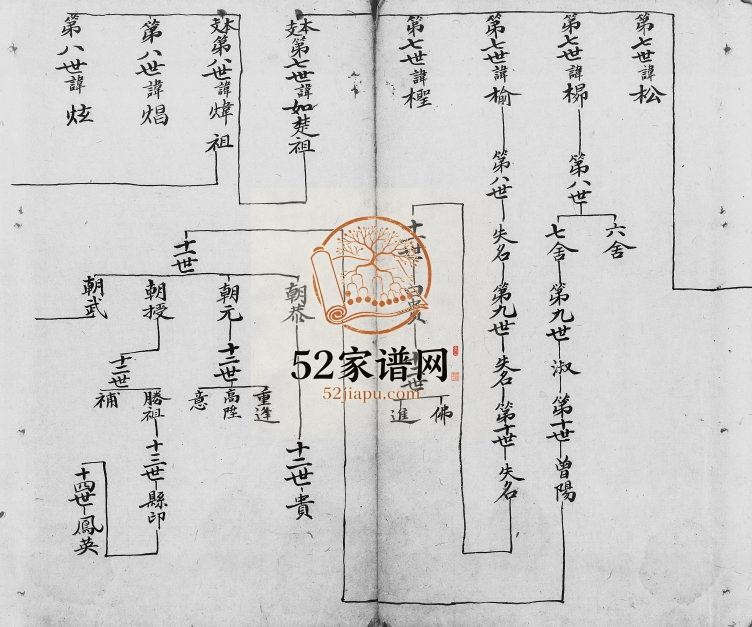 第七世諱松
第七世諱楊
第八世
六舍
七舍
第九世
淑
第十世
曾陽
第七世諱榆
第八世
失名
第九世
失名
第十世
失名
第七世諱檉
十一世
十二世
佛
進
本支
第七世諱如楚祖
本支
第八世諱煒祖
第八世諱焻
第八世諱炫
十一世
朝恭
十二世
貴
朝元
十二世
重進
高陞
意
朝授
十二世
勝祖
補
十三世
縣印
十四世
鳳英
朝武
52家谱网
52jiapu.com